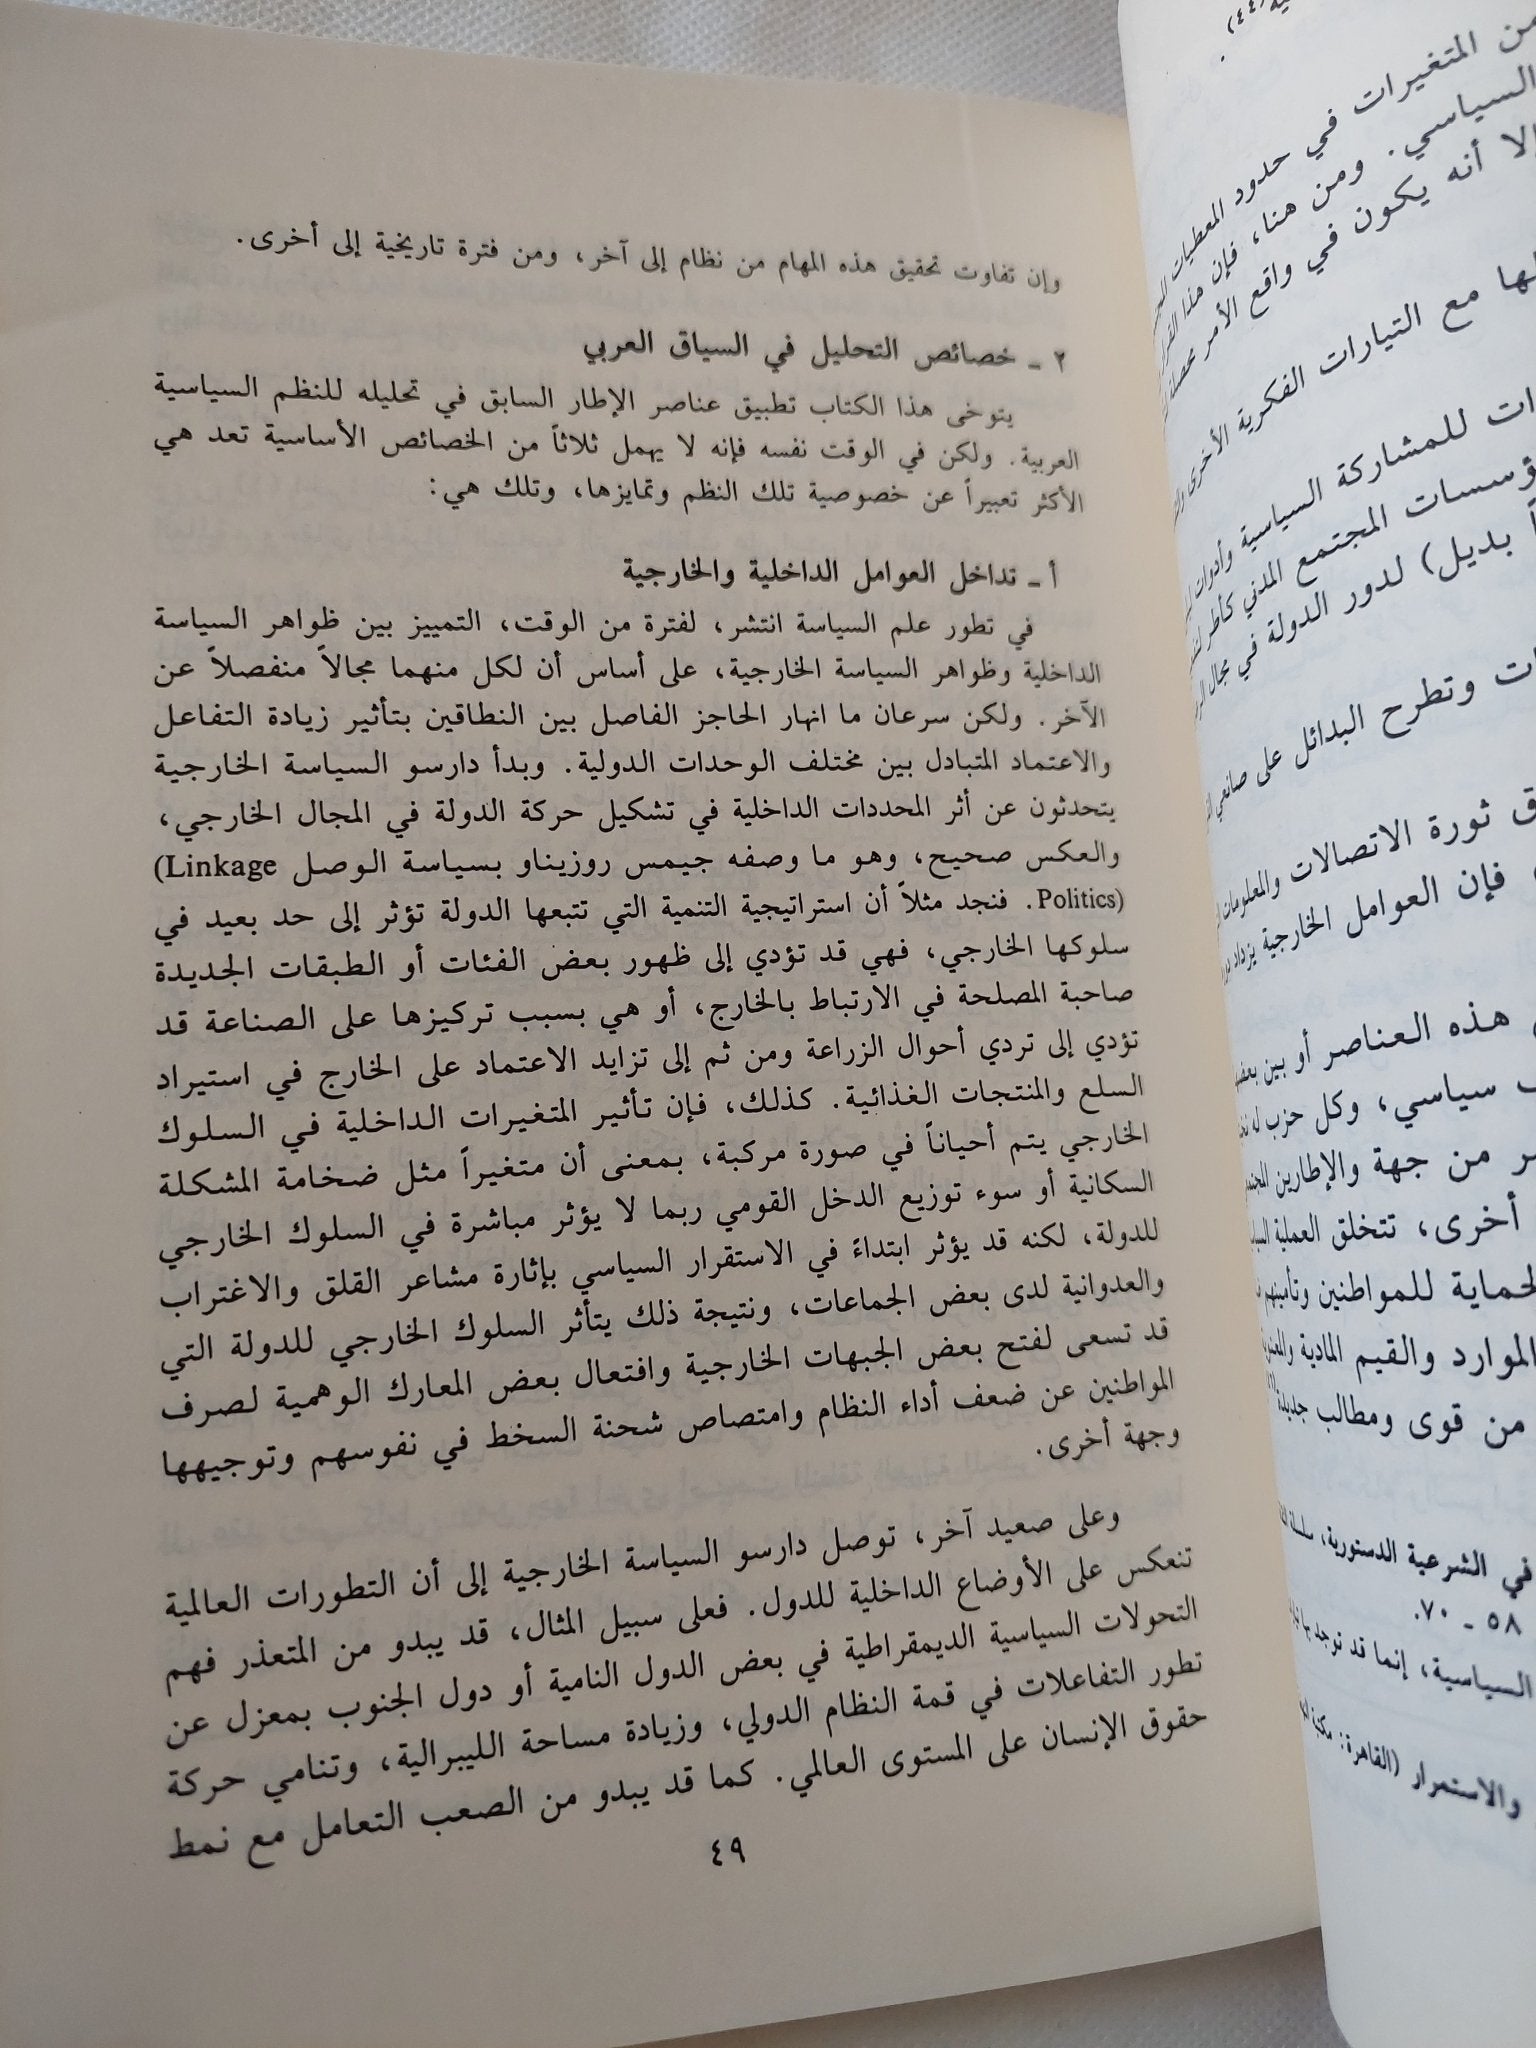 وإن تفاوت تحقيق هذه المهام من نظام إلى آخر، ومن فترة تاريخية إلى أخرى.
٢ ـ خصائص التحليل في السياق العربي
يتوخى هذا الكتاب تطبيق عناصر الإطار السابق في تحليله للنظم السياسية
العربية. ولكن في الوقت نفسه فإنه لا يهمل ثلاثاً من الخصائص الأساسية تعد هي
الأكثر تعبيراً عن خصوصية تلك النظم وتمايزها، وتلك هي:
أ ـ تداخل العوامل الداخلية والخارجية
في تطور علم السياسة انتشر، لفترة من الوقت، التمييز بين ظواهر السياسة
الداخلية وظواهر السياسة الخارجية، على أساس أن لكل منهما مجالاً منفصلاً عن
الآخر. ولكن سرعان ما انهار الحاجز الفاصل بين النطاقين بتأثير زيادة التفاعل
والاعتماد المتبادل بين مختلف الوحدات الدولية. وبدأ دارسو السياسة الخارجية
يتحدثون عن أثر المحددات الداخلية في تشكيل حركة الدولة في المجال الخارجي،
والعكس صحيح، وهو ما وصفه جيمس روزيناو بسياسة الوصل (Linkage
Politics). فنجد مثلاً أن استراتيجية التنمية التي تتبعها الدولة تؤثر إلى حد بعيد في
سلوكها الخارجي، فهي قد تؤدي إلى ظهور بعض الفئات أو الطبقات الجديدة
صاحبة المصلحة في الارتباط بالخارج، أو هي بسبب تركيزها على الصناعة قد
تؤدي إلى تردي أحوال الزراعة ومن ثم إلى تزايد الاعتماد على الخارج في استيراد
السلع والمنتجات الغذائية. كذلك، فإن تأثير المتغيرات الداخلية في السلوك
الخارجي يتم أحياناً في صورة مركبة، بمعنى أن متغيراً مثل ضخامة المشكلة
السكانية أو سوء توزيع الدخل القومي ربما لا يؤثر مباشرة في السلوك الخارجي
للدولة، لكنه قد يؤثر ابتداءً في الاستقرار السياسي بإثارة مشاعر القلق والاغتراب
والعدوانية لدى بعض الجماعات، ونتيجة ذلك يتأثر السلوك الخارجي للدولة التي
قد تسعى لفتح بعض الجبهات الخارجية وافتعال بعض المعارك الوهمية لصرف
المواطنين عن ضعف أداء النظام وامتصاص شحنة السخط في نفوسهم وتوجيهها
وجهة أخرى.
وعلى صعيد آخر، توصل دارسو السياسة الخارجية إلى أن التطورات العالمية
تنعكس على الأوضاع الداخلية للدول. فعلى سبيل المثال، قد يبدو من المتعذر فهم
التحولات السياسية الديمقراطية في بعض الدول النامية أو دول الجنوب بمعزل عن
تطور التفاعلات في قمة النظام الدولي، وزيادة مساحة الليبرالية، وتنامي حركة
حقوق الإنسان على المستوى العالمي. كما قد يبدو من الصعب التعامل مع نمط
٤٩
(٤٤).
من المتغيرات في حدود المعطيات
السياسي. ومن هنا، فإن هذا
إلا أنه يكون في واقع الأمر محصلة
مع التيارات الفكرية الأخرى
للمشاركة السياسية وأدوات
المجتمع المدني كأطر
بديل) لدور الدولة في مجال
وتطرح البدائل على صانعي
ثورة الاتصالات والمعلومات
فإن العوامل الخارجية يزداد
هذه العناصر أو بين
سياسي، وكل حزب له
من جهة والإطارين
أخرى، تتخلق العملية
للمواطنين وتأمينهم
الموارد والقيم المادية
من قوى ومطالب جديدة
في الشرعية الدستورية، سلسلة
٥٨ ـ ٧٠.
السياسية، إنما قد توجد بها
والاستمرار (القاهرة: مكتبة